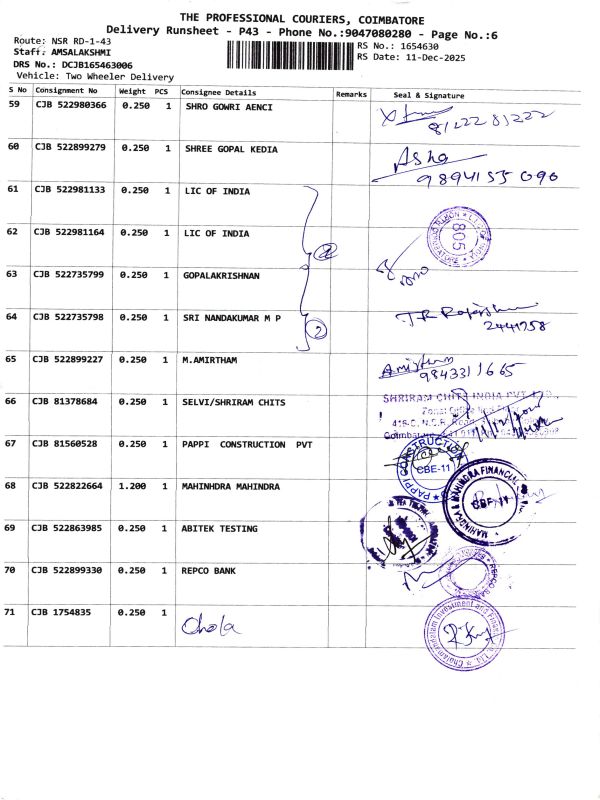 THE PROFESSIONAL COURIERS, COIMBATORE
Delivery Runsheet - P43 - Phone No.:9047080280 - Page No.:6
Route: NSR RD-1-43
Staff: AMSALAKSHMI
DRS No.: DCJB165463006
Vehicle: Two Wheeler Delivery
RS No.: 1654630
RS Date: 11-Dec-2025
S No Consignment No Weight PCS Consignee Details Remarks Seal & Signature
59 CJB 522980366 0.250 1 SHRO GOWRI AENCI
8122281222
60 CJB 522899279 0.250 1 SHREE GOPAL KEDIA Asha
9894155090
61 CJB 522981133 0.250 1 LIC OF INDIA
62 CJB 522981164 0.250 1 LIC OF INDIA 2 805
63 CJB 522735799 0.250 1 GOPALAKRISHNAN
64 CJB 522735798 0.250 1 SRI NANDAKUMAR M P 2
2441758
65 CJB 522899227 0.250 1 M.AMIRTHAM
9843311665
66 CJB 81378684 0.250 1 SELVI/SHRIRAM CHITS SHRIRAM CHITS INDIA PVT. LTD.,
67 CJB 81560528 0.250 1 PAPPI CONSTRUCTION PVT PAPPI CONSTRUCTION CBE-11
68 CJB 522822664 1.200 1 MAHINHDRA MAHINDRA MAHINDRA & MAHINDRA FINANCIAL CBE-11
69 CJB 522863985 0.250 1 ABITEK TESTING
70 CJB 522899330 0.250 1 REPCO BANK
71 CJB 1754835 0.250 1 Chola Cholamandalam Investment and